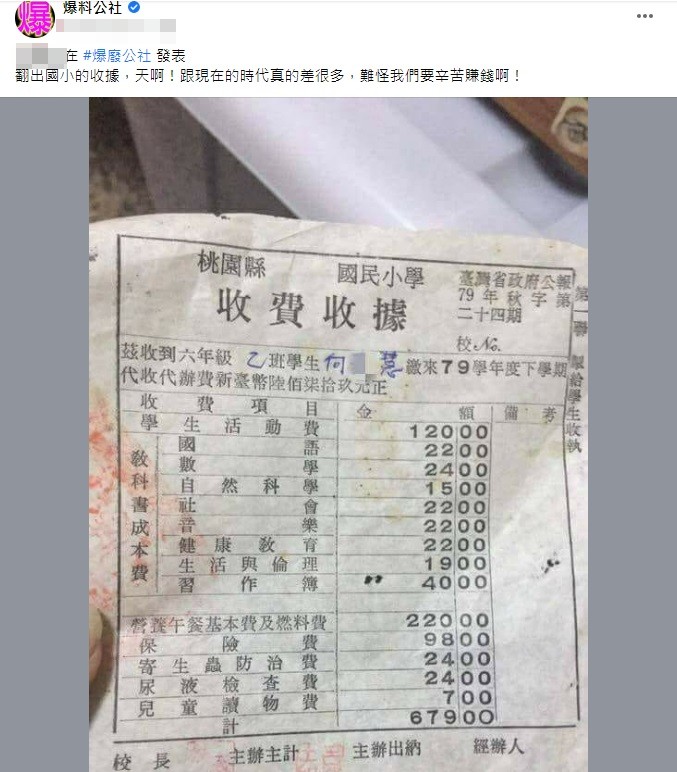 爆料公社
在 #爆廢公社 發表
翻出國小的收據，天啊！跟現在的時代真的差很多，難怪我們要辛苦賺錢啊！
桃園縣 國民小學
收費收據
臺灣省政府公報
79年秋字第
二十四期
校No.
第一聯 製給學生收執
茲收到六年級 乙班學生何 慧 繳來79學年度下學期
代收代辦費新臺幣陸佰柒拾玖元正
收費項目 金額 備考
學生活動費 120 00
教科書成本費
國語 22 00
數學 24 00
自然科學 15 00
社會 22 00
音樂 22 00
健康教育 22 00
生活與倫理 19 00
習作簿 〃 40 00
營養午餐基本費及燃料費 220 00
保險費 98 00
寄生蟲防治費 24 00
尿液檢查費 24 00
兒童讀物費 7 00
計 679 00
校長 主辦主計 主辦出納 經辦人